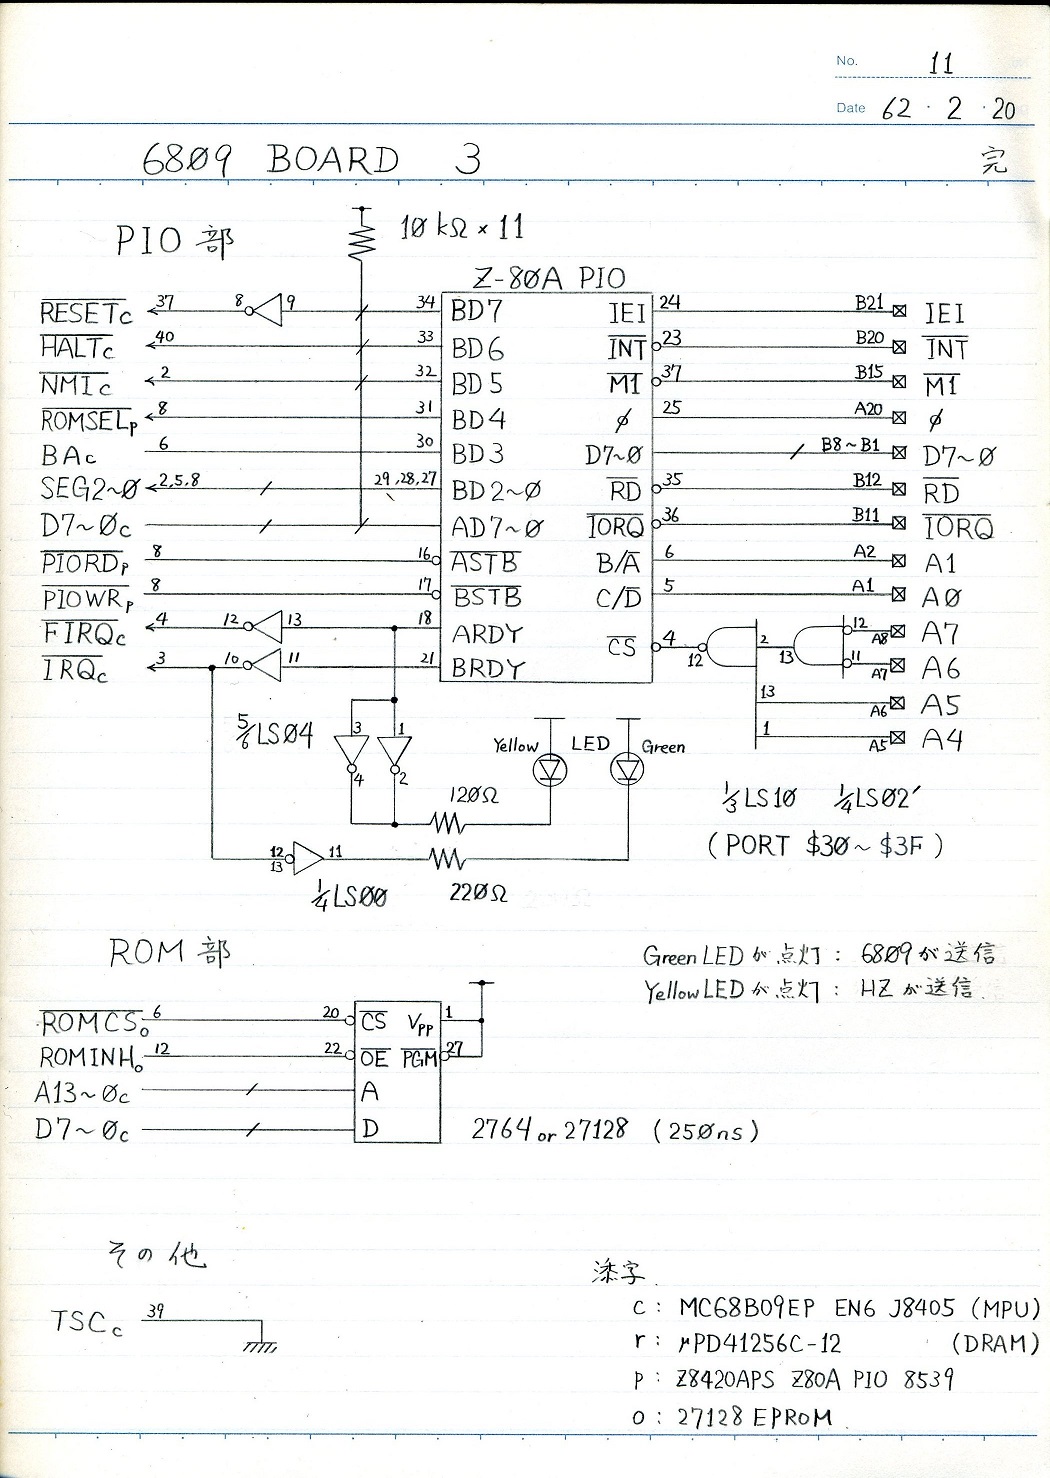 No. 11
Date 62・2・20
6809 BOARD 3 完
PIO 部 10 kΩ × 11
Z-80A PIO
RESETc 37 8 9 34 BD7 IEI 24 B21 IEI
HALTc 40 33 BD6 INT 23 B20 INT
NMIc 2 32 BD5 M1 37 B15 M1
ROMSELp 8 31 BD4 φ 25 A20 φ
BAc 6 30 BD3 D7~0 B8~B1 D7~0
SEG2~0 2,5,8 29,28,27 BD2~0 RD 35 B12 RD
D7~0c AD7~0 IORQ 36 B11 IORQ
PIORDp 8 16 ASTB B/A 6 A2 A1
PIOWRp 8 17 BSTB C/D 5 A1 A0
FIRQc 4 12 13 18 ARDY CS 4 12 2 13 12 A8 A7
IRQc 3 10 11 21 BRDY 11 A7 A6
13 A6 A5
1 A5 A4
5/6 LS04 3 1 4 2
Yellow LED Green
120Ω
1/3 LS10 1/4 LS02'
(PORT $30~$3F)
12 13 11
1/4 LS00 220Ω
ROM 部
Green LED が点灯: 6809が送信
Yellow LED が点灯: HZ が送信
ROMCSo 6 20 CS VPP 1
ROMINHo 12 22 OE PGM 27
A13~0c A
D7~0c D
2764 or 27128 (250ns)
その他
TSCc 39
添字
c: MC68B09EP EN6 J8405 (MPU)
r: μPD41256C-12 (DRAM)
p: Z8420APS Z80A PIO 8539
o: 27128 EPROM